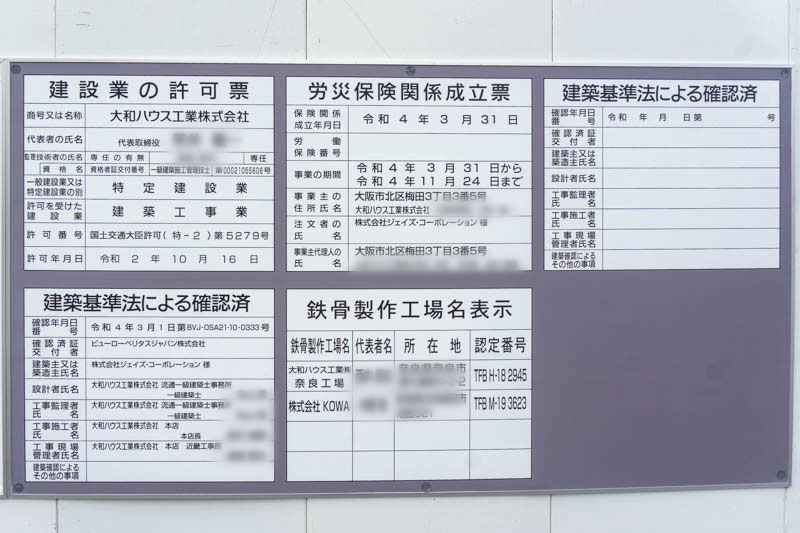 建設業の許可票
商号又は名称 大和ハウス工業株式会社
代表者の氏名 代表取締役
監理技術者の氏名 専任の有無 専任
資格名 資格者証交付番号 一級建築施工管理技士 第00021055606号
一般建設業又は特定建設業の別 特定建設業
許可を受けた建設業 建築工事業
許可番号 国土交通大臣許可(特-2)第5279号
許可年月日 令和2年10月16日
労災保険関係成立票
保険関係成立年月日 令和4年3月31日
労働保険番号
事業の期間 令和4年3月31日から
令和4年11月24日まで
事業主の住所氏名 大阪市北区梅田3丁目3番5号
大和ハウス工業株式会社
注文者の氏名 株式会社ジェイズ・コーポレーション 様
事業主代理人の氏名 大阪市北区梅田3丁目3番5号
建築基準法による確認済
確認年月日番号 令和 年 月 日第 号
確認済証交付者
建築主又は築造主氏名
設計者氏名
工事監理者氏名
工事施工者氏名
工事現場管理者氏名
建築確認によるその他の事項
建築基準法による確認済
確認年月日番号 令和4年3月1日第BVJ-OSA21-10-0333号
確認済証交付者 ビューローベリタスジャパン株式会社
建築主又は築造主氏名 株式会社ジェイズ・コーポレーション 様
設計者氏名 大和ハウス工業株式会社 流通一級建築士事務所
一級建築士
工事監理者氏名 大和ハウス工業株式会社 流通一級建築士事務所
一級建築士
工事施工者氏名 大和ハウス工業株式会社 本店
本店長
工事現場管理者氏名 大和ハウス工業株式会社 本店 近畿工事部
建築確認によるその他の事項
鉄骨製作工場名表示
鉄骨製作工場名 代表者名 所在地 認定番号
大和ハウス工業㈱奈良工場 奈良県奈良市 TFB H-18 2945
株式会社 KOWA TFB M-19 3623